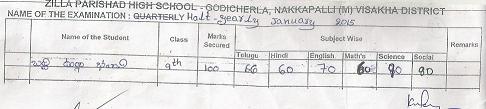 ZILLA PARISHAD HIGH SCHOOL - GODICHERLA, NAKKAPALLI (M) VISAKHA DISTRICT
NAME OF THE EXAMINATION : QUARTERLY Half-yearly January 2015
Name of the Student Class Marks Secured Subject Wise Remarks
Telugu Hindi English Math's Science Social
9th 100 66 60 70 60 90 90